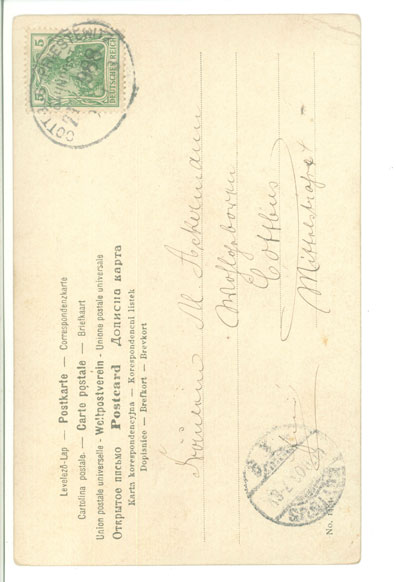 5
DEUTSCHES REICH
Levelező-Lap — Postkarte — Correspondenzkarte
Cartolina postale. — Carte postale — Briefkaart
Union postale universelle - Weltpostverein - Unione postale universale
Открытое письмо Postcard Дописна карта
Karta korespondencyjna — Korespondenční lístek
Dopisnice — Brefkort — Brevkort
Fräulein M. Ackermann
Wohlgeboren
Cottbus
Mittelstraße
No.